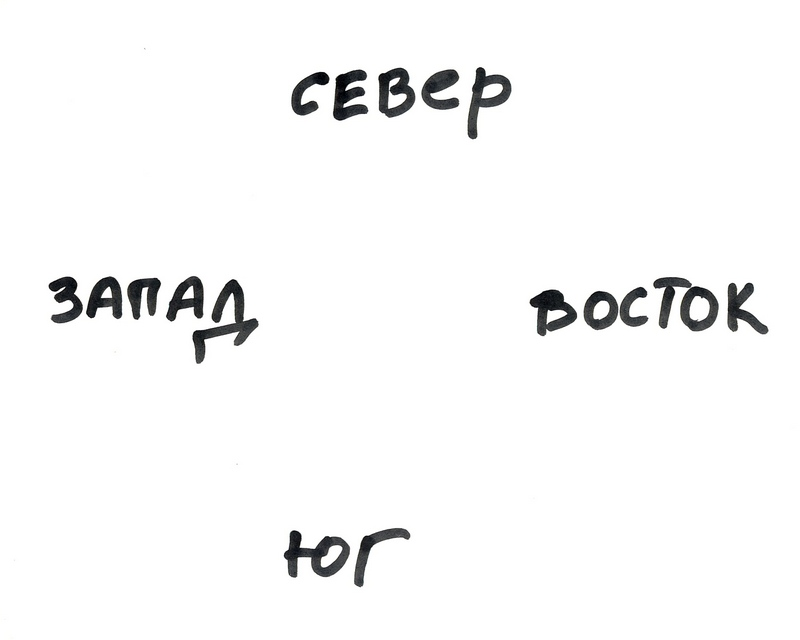 СЕВЕР
ЗАПАД ВОСТОК
ЮГ